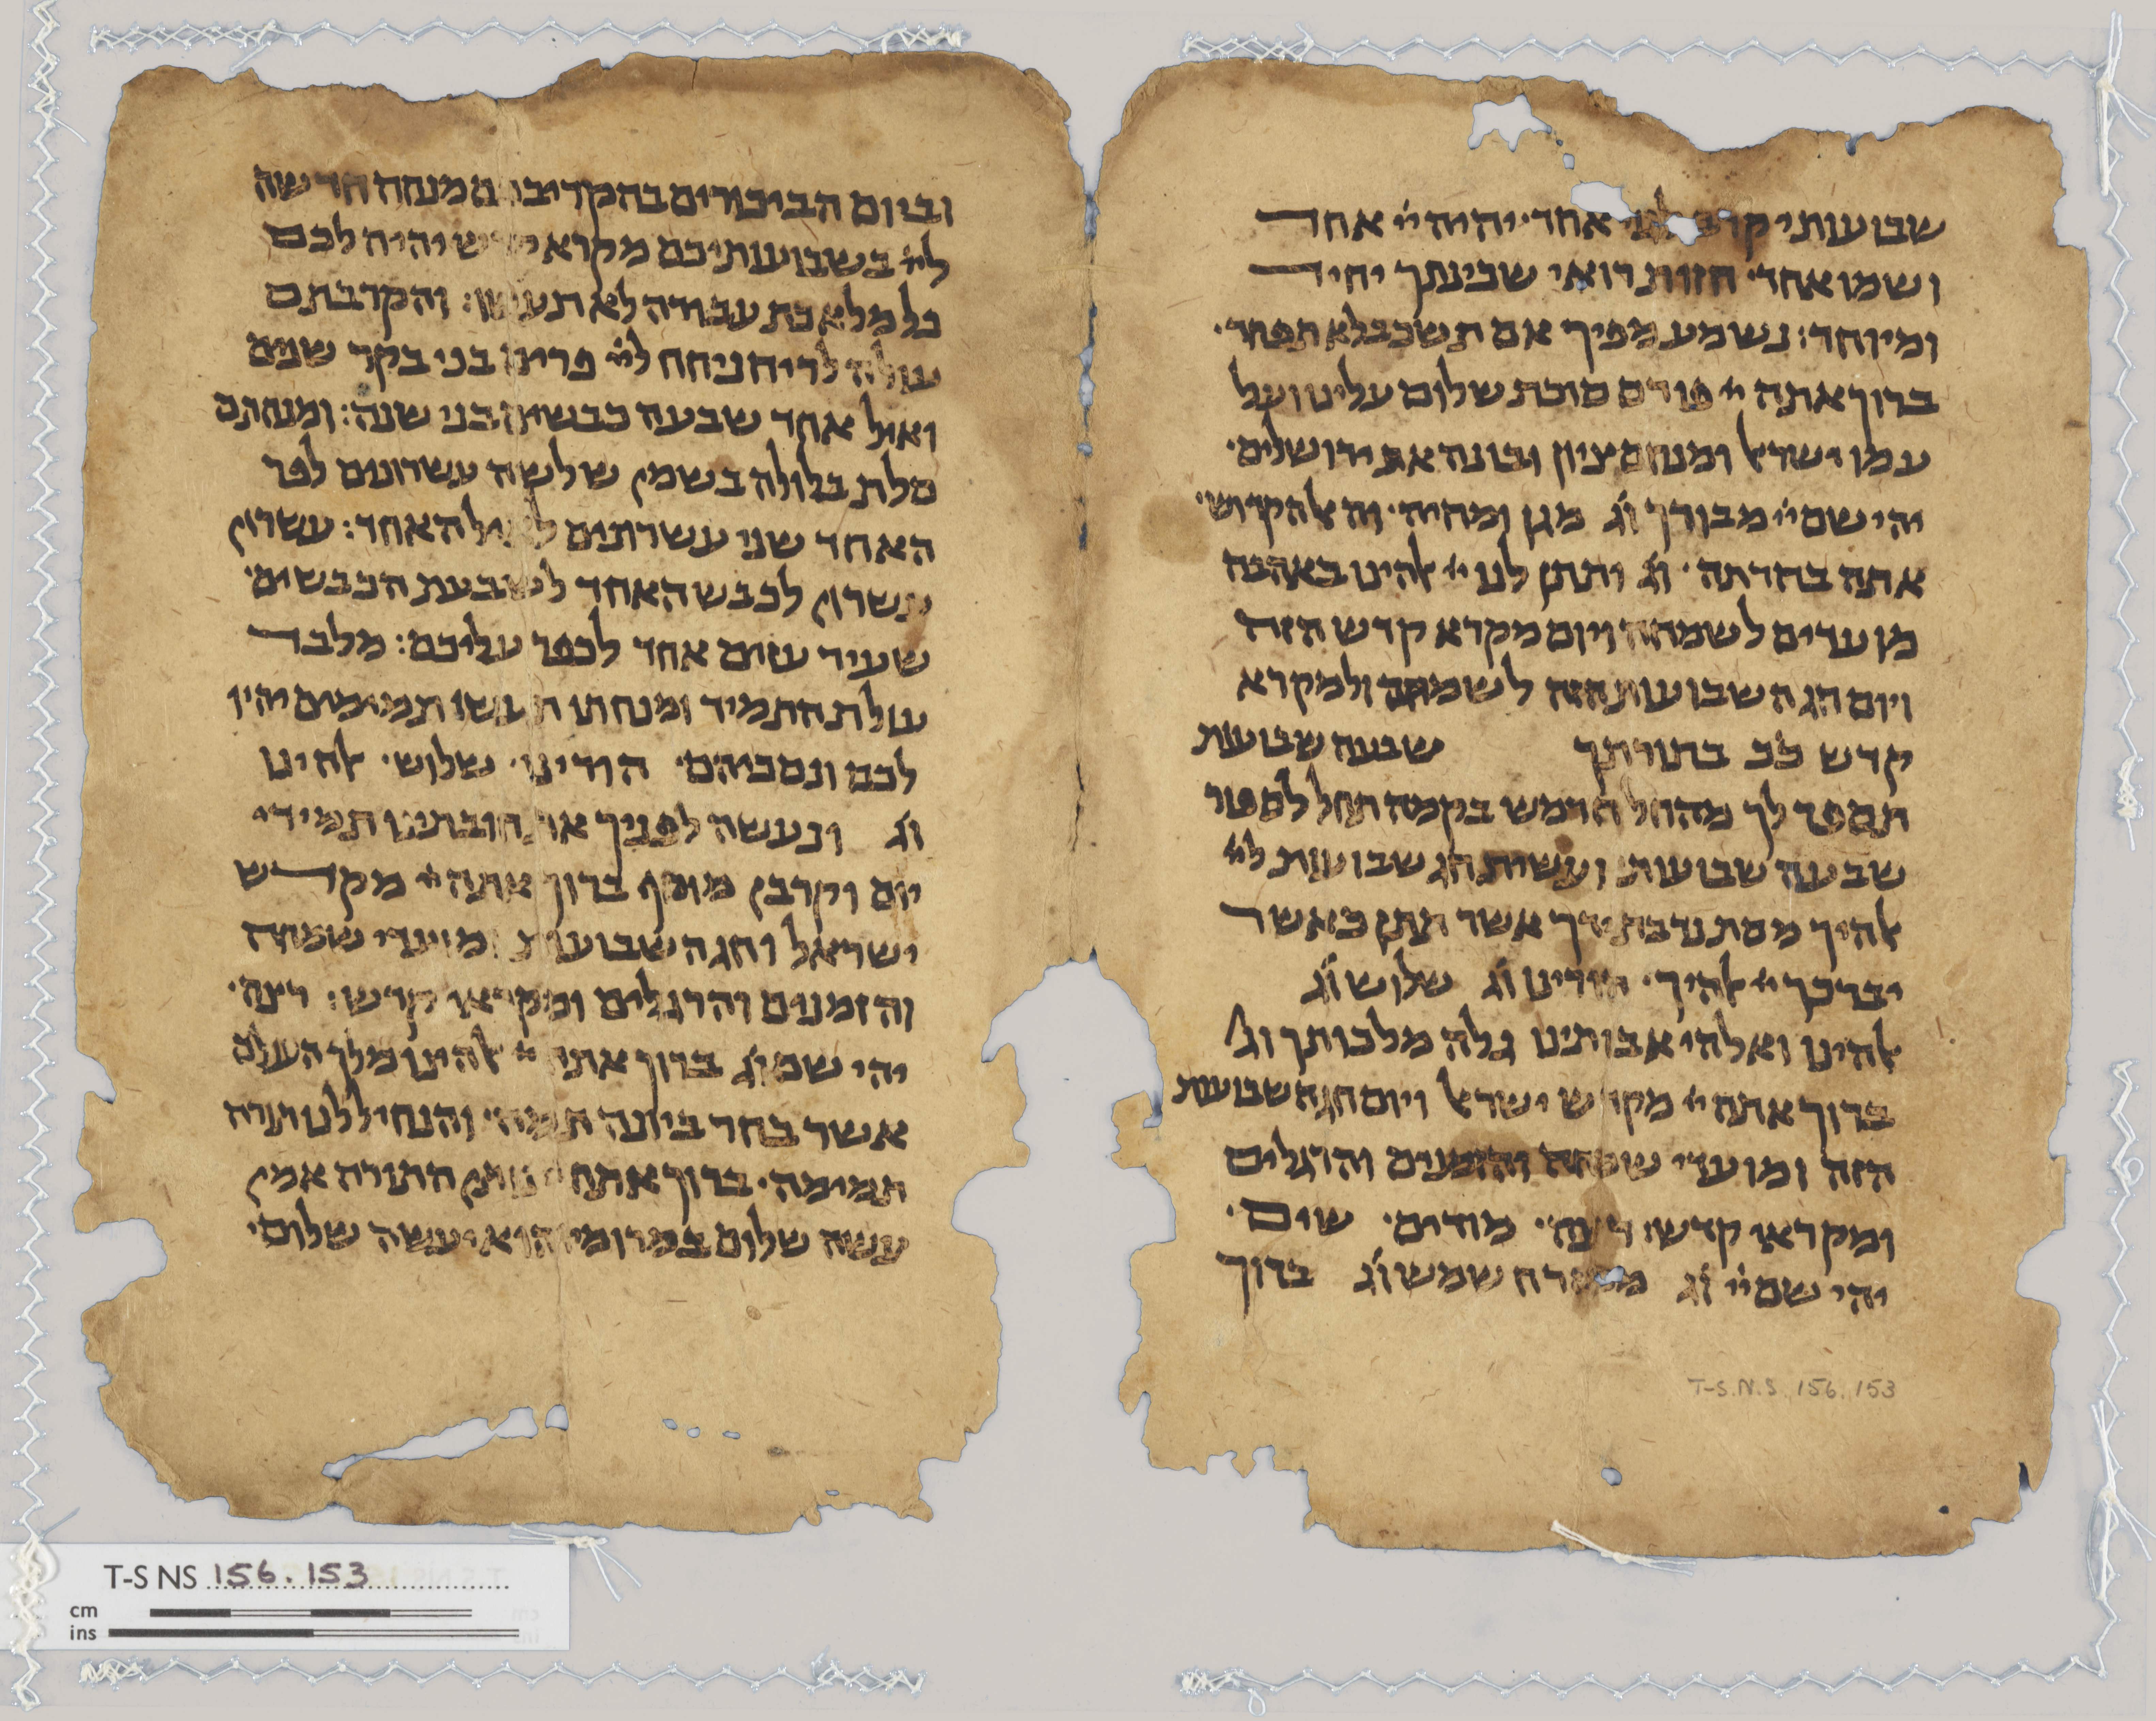 שבועותי קרב לפני אחד· יהיה יי אחד
ושמו אחד· חזות רואי שכינתך יחיד
ומיוחד: נשמע מפיך אם תשכב לא תפחד·
ברוך אתה יי פורס סוכת שלום עלינו ועל
עמו ישראל ומנחם ציון ובונה את ירושלים·
יהי שם יי מבורך וג מגן ומחיה· והאל הקדוש·
אתה בחרתה· וג ותתן לנו יי אלהינו באהבה
מועדים לשמחה ויום מקרא קדש הזה
ויום חג השבועות הזה לשמחה ולמקרא
קדש ככ בתורתך שבעה שבועות
תספר לך מהחל חרמש בקמה תחל לספור
שבעה שבועות: ועשית חג שבועות ליי
אלהיך מסת נדבת ידך אשר תתן כאשר
יברכך יי אלהיך· הודינו וג שלוש וג
אלהינו ואלהי אבותינו גלה מלכותך וג
ברוך אתה יי מקדש ישראל ויום חג השבועות
הזה ומועדי שמחה והזמנים והרגלים
ומקראי קדש: רצה· מודים· שים·
יהי שם יי וג ממזרח שמש וג ברוך
וביום הביכורים בהקריבכם מנחה חדשה
ליי בשבועותיכם מקרא קדש יהיה לכם
כל מלאכת עבודה לא תעשו: והקרבתם
עולה לריח ניחח ליי פרים בני בקר שנים
ואיל אחד שבעה כבשים בני שנה: ומנחתם
סלת בלולה בשמן שלשה עשרונים לפר
האחד שני עשרונים לאיל האחד: עשרון
עשרון לכבש האחד לשבעת הכבשים·
שעיר עזים אחד לכפר עליכם: מלבד
עולת התמיד ומנחתו תעשו תמימים יהיו
לכם ונסכיהם· הודינו· שלוש· אלהינו
וג ונעשה לפניך את חובתינו תמידי
יום וקרבן מוסף ברוך אתה יי מקדש
ישראל וחג השבועות ומועדי שמחה
והזמנים והרגלים ומקראי קדש: רצה·
יהי שם וג ברוך אתה יי אלהינו מלך העולם
אשר בחר ביונה תמה· והנחיל לנו תורה
תמימה· ברוך אתה יי נותן התורה אמן
עשה שלום במרומיו הוא יעשה שלום·
T-S.N.S. 156.153
T-S NS 156.153
cm
ins